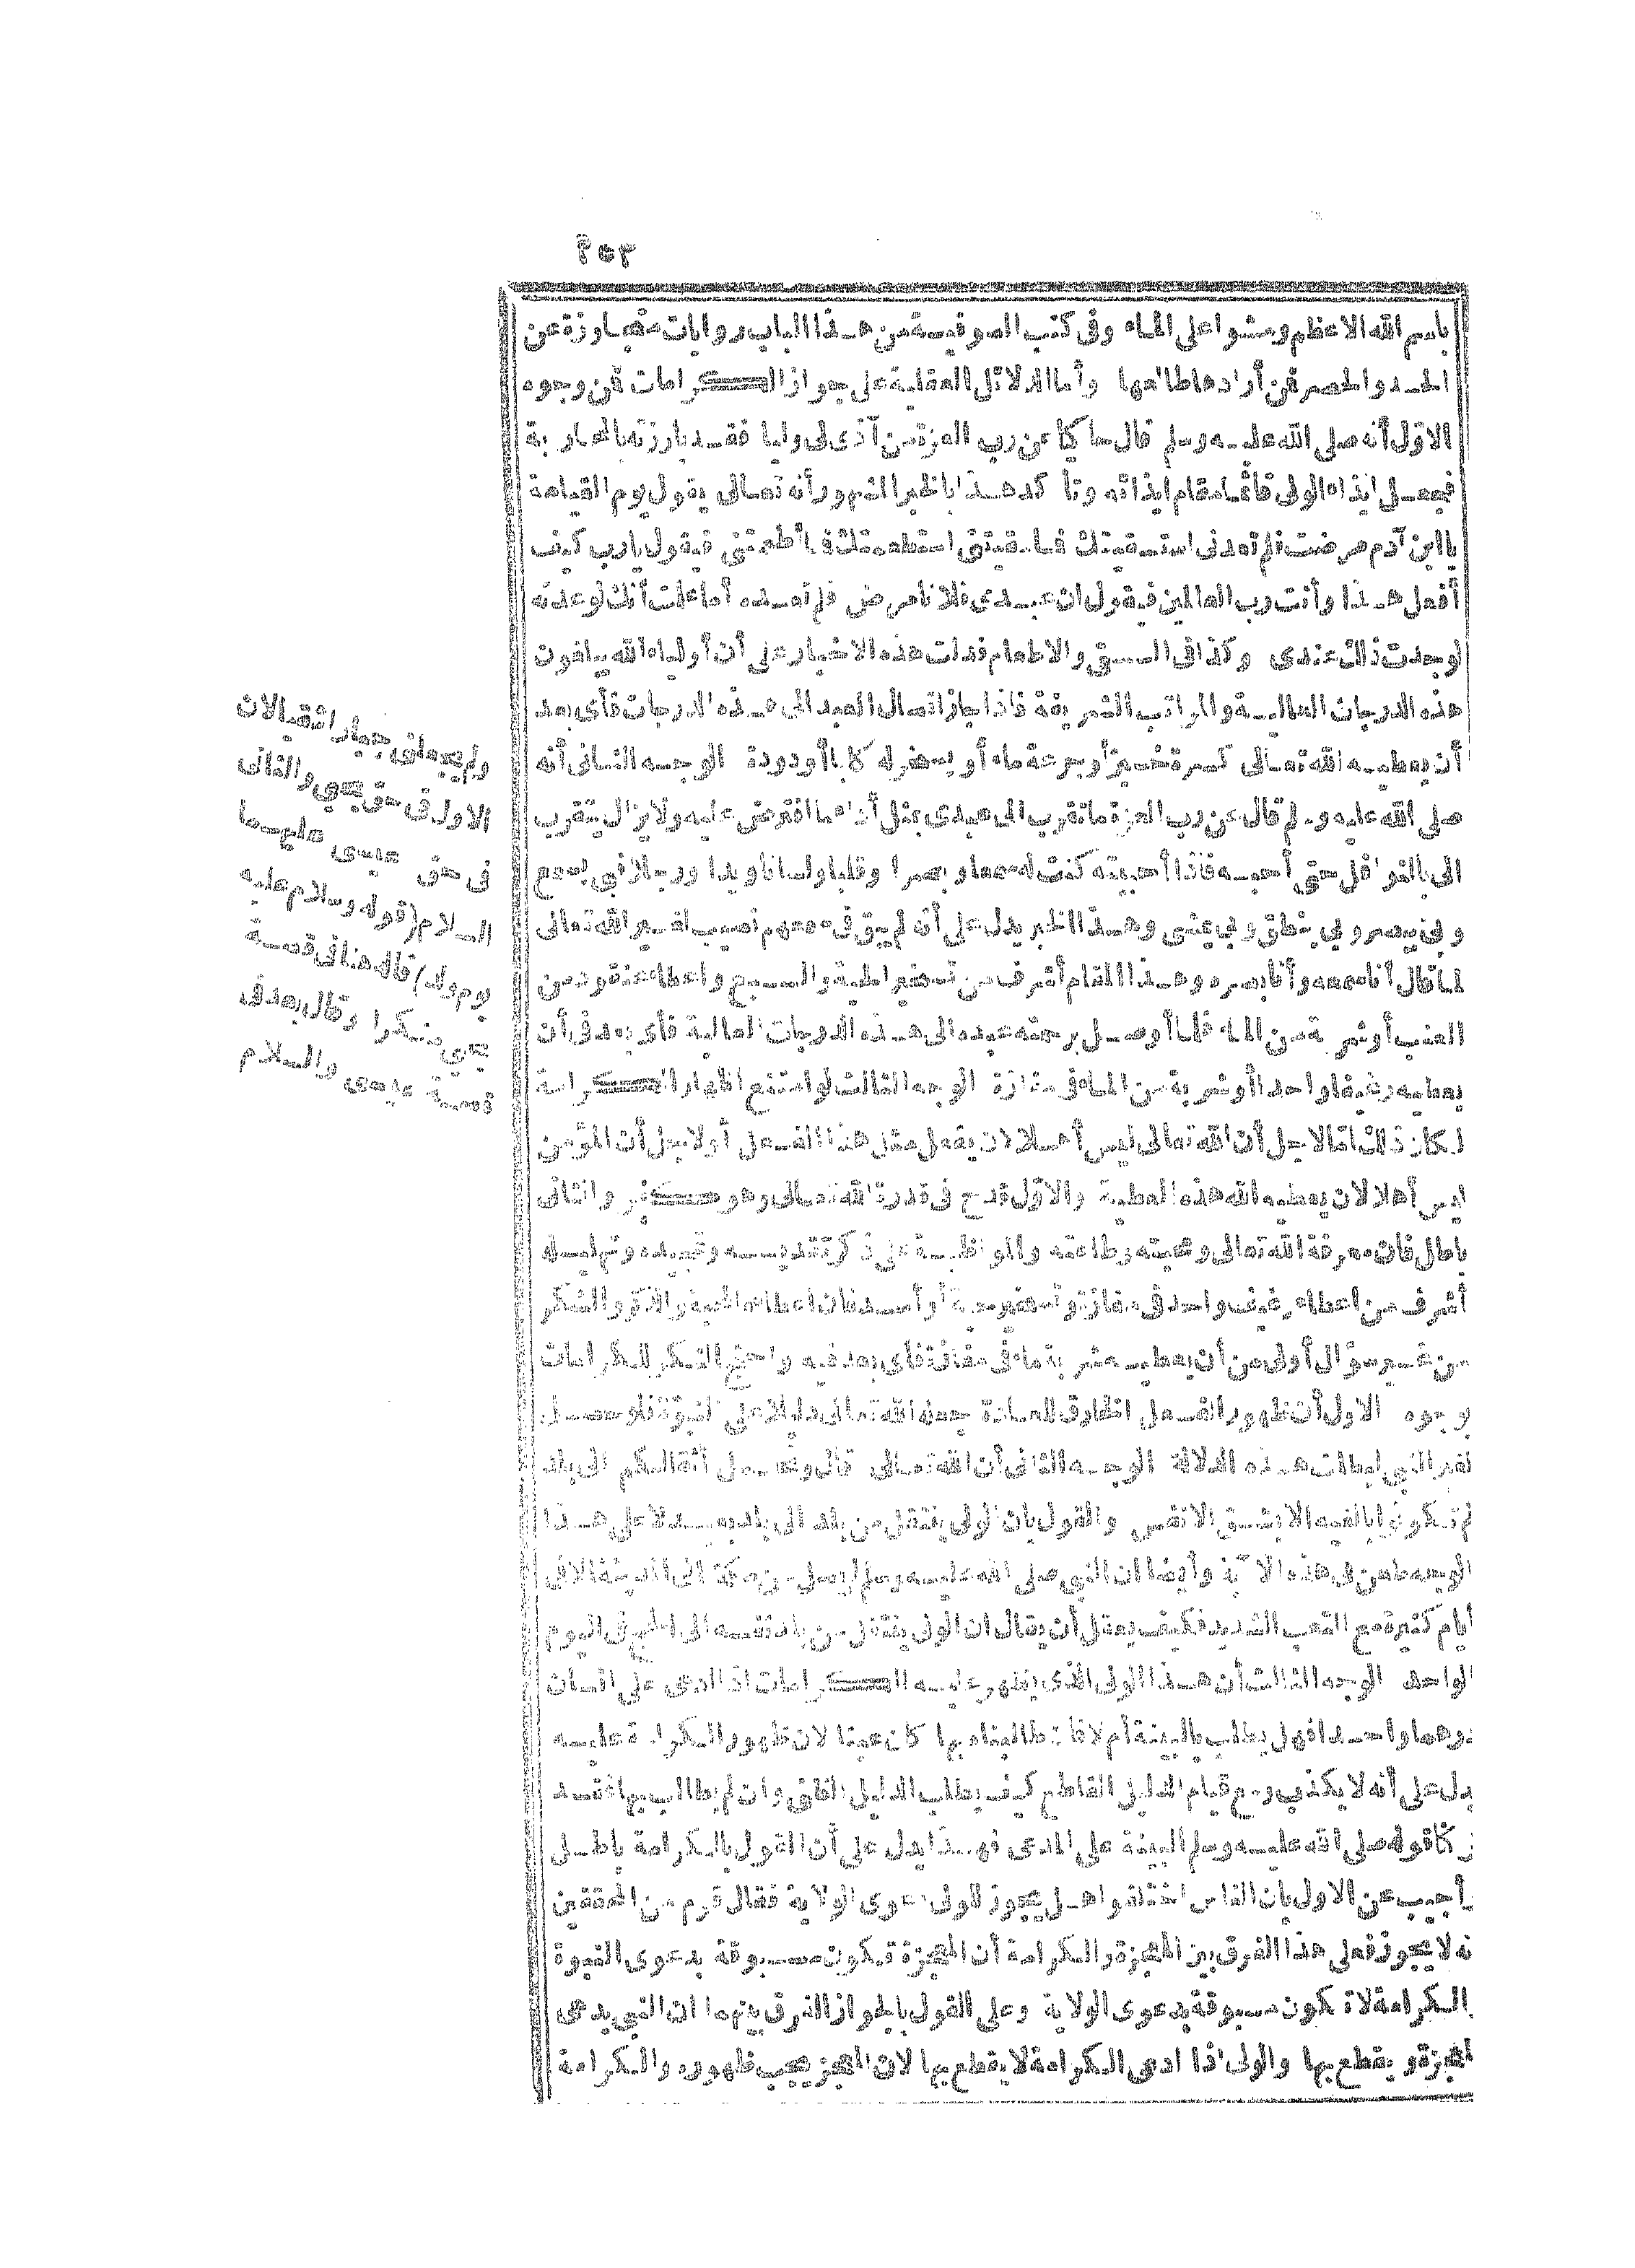 ٣٥٣
باسم الله الاعظم ومشوا على الماء وفى كتب الصوفية من هذا الباب روايات متجاوزة عن
الحد والحصر فمن أرادها طالعها وأما الدلائل العقلية على جواز الكرامات فمن وجوه
الاوّل أنه صلى الله عليه وسلم قال حاكيا عن رب العزة من آذى لى وليا فقد بارزته بالمحاربة
فجعل ايذاء الولى قائما مقام ايذائه وتأ كد هذا بالخبر المشهور أنه تعالى يقول يوم القيامة
يا ابن آدم مرضت فلم تعدنى استسقيتك فما سقيتنى استطعمتك فما أطعمتنى فيقول يارب كيف
أفعل هذا وأنت رب العالمين فيقول ان عبدى فلانا مرض فلم تعده أما علمت أنك لو عدته
لوجدت ذلك عندى وكذا فى السقى والاطعام فدلت هذه الاخبار على أن أولياء الله يبلغون
هذه الدرجات العالية والمراتب الشريفة فاذا جاز اتصال العبد الى هذه الدرجات فأى بعد
أن يعطيه الله تعالى كسرة خبز أو جرعة ماء أو يسخر له كلبا أو دودة الوجه الثانى أنه
صلى الله عليه وسلم قال عن رب العزة ما تقرب الى عبدى بمثل أداء ما افترضت عليه ولا يزال يتقرب
الى بالنوافل حتى أحبه فاذا أحببته كنت له سمعا وبصرا وقلبا ولسانا ويدا ورجلا فبى يسمع
وبى يبصر وبى ينطق وبى يمشى وهذا الخبر يدل على أنه لم يبق فى سمعهم نصيب لغير الله تعالى
لما قال أنا سمعه وأنا بصره وهذا المقام أشرف من تسخير الحية والسبع واعطاء عنقود من
العنب أو شربة من الماء فلما أوصل برحمته عبده الى هذه الدرجات العالية فأى بعد فى أن
يعطيه رغيفا واحدا أو شربة من الماء فى مفازة الوجه الثالث لو امتنع اظهار الكرامة
لكان ذلك امّا لاجل أن الله تعالى ليس أهلا لان يفعل مثل هذا الفعل أو لاجل أن المؤمن
ليس أهلا لان يعطيه الله هذه العطية والاوّل قدح فى قدرة الله تعالى وهو كفر والثانى
باطل فان معرفة الله تعالى ومحبته وطاعته والمواظبة على ذكر تقديسه وتمجيده وتهليله
أشرف من اعطاء رغيف واحد فى مفازة وتسخير حية أو أسد فان اعطاء المحبة والذكر والشكر
من غير سؤال أولى من أن يعطيه شربة ماء فى مفازة فأى بعد فيه واحتج المنكر للكرامات
بوجوه الاول أن ظهور الفعل الخارق للعادة جعله الله تعالى دليلا على النبوّة فلو حصل
لغير النبى لبطلت هذه الدلالة الوجه الثانى أن الله تعالى قال وتحمل أثقالكم الى بلد
لم تكونوا بالغيه الا بشق الانفس والقول بان الولى ينتقل من بلد الى بلد بعيد لا على هذا
الوجه طعن فى هذه الآية وأيضا ان النبى صلى الله عليه وسلم لم يصل من مكة الى المدينة الا فى
أيام كثيرة مع التعب الشديد فكيف يعقل أن يقال ان الولى ينتقل من بلد نفسه الى الحج فى اليوم
الواحد الوجه الثالث أن هذا الولى الذى يظهر عليه الكرامات اذا ادعى على انسان
درهما واحدا فهل يطلب بالبينة أم لا فان طالبناه بها كان عبثا لان ظهور الكرامة عليه
يدل على أنه لا يكذب ومع قيام الدليل القاطع كيف يطلب الدليل الظنى وان لم يطالب بها فقد
تركنا قوله صلى الله عليه وسلم البينة على المدعى فهذا يدل على أن القول بالكرامة باطل
وأجيب عن الاول بان الناس اختلفوا هل يجوز للولى دعوى الولاية فقال قوم من المحققين
انه لا يجوز فعلى هذا الفرق بين المعجزة والكرامة أن المعجزة تكون مسبوقة بدعوى النبوة
والكرامة لا تكون مسبوقة بدعوى الولاية وعلى القول بالجواز الفرق بينهما ان النبى يدعى
المعجزة ويقطع بها والولى اذا ادعى الكرامة لا يقطع بها لان المعجز يجب ظهوره والكرامة
ولم يجعلنى جبارا شقيا لان
الاول فى حق يحيى والثانى
فى حق عيسى عليهما
السلام (قوله وسلام عليه
يوم ولد) قاله هنا فى قصة
يحيى منكرا وقال بعد فى
قصة عيسى والسلام